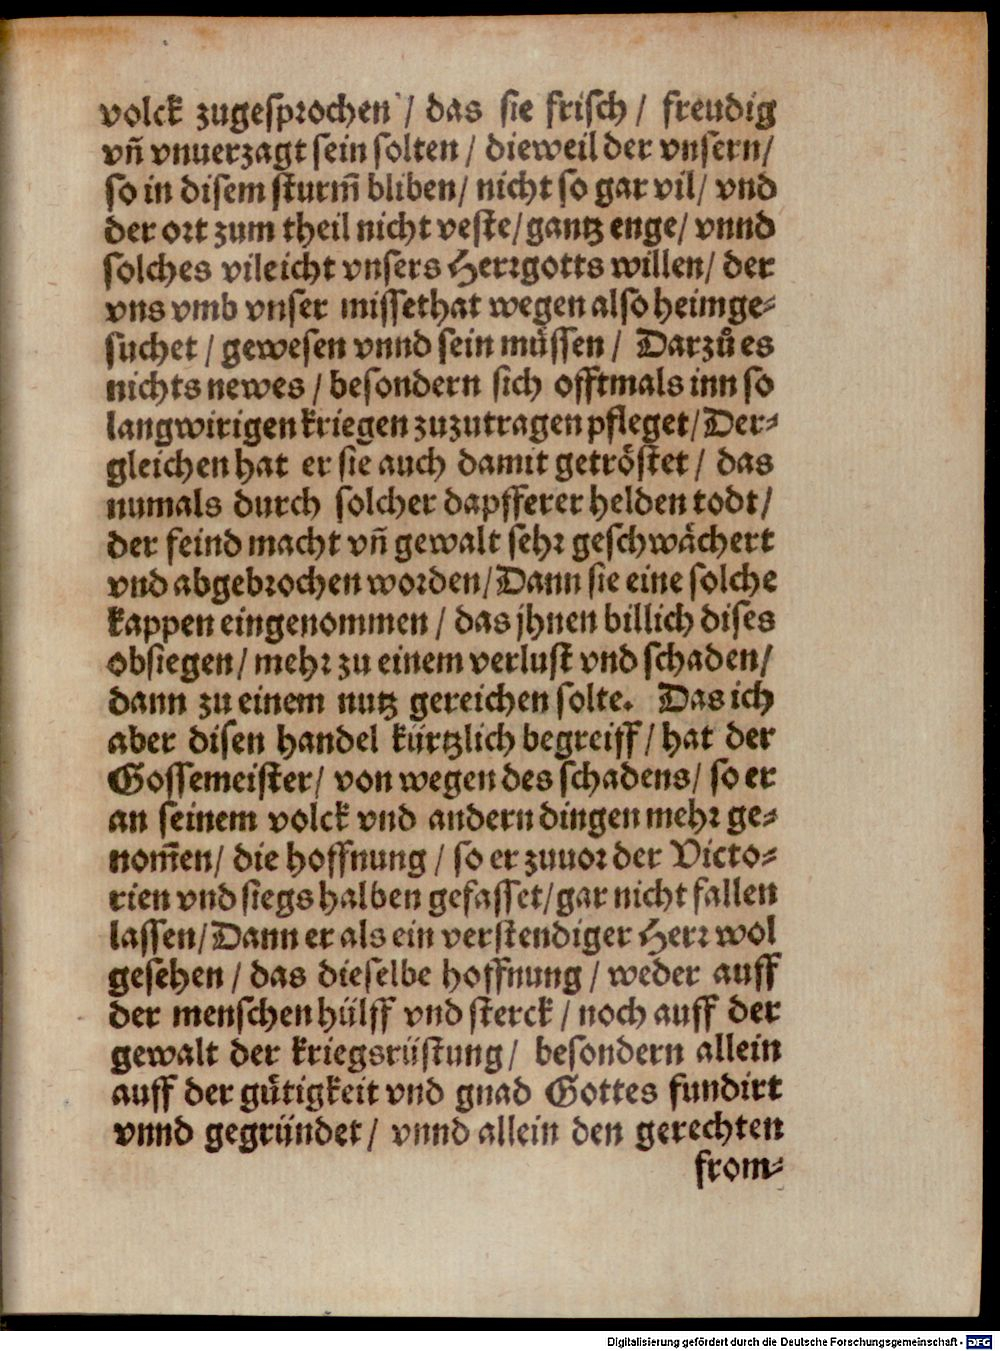 volck zugesprochen / das sie frisch / freudig
vñ vnuerzagt sein solten / dieweil der vnsern /
so in disem sturm̄ bliben / nicht so gar vil / vnd
der ort zum theil nicht veste / gantz enge / vnnd
solches vileicht vnsers Herrgotts willen / der
vns vmb vnser missethat wegen also heimge-
suchet / gewesen vnnd sein müssen / Darzů es
nichts newes / besondern sich offtmals inn so
langwirigen kriegen zuzutragen pfleget / Der-
gleichen hat er sie auch damit getröstet / das
numals durch solcher dapfferer helden todt /
der feind macht vñ gewalt sehr geschwächert
vnd abgebrochen worden / Dann sie eine solche
kappen eingenommen / das jhnen billich dises
obsiegen / mehr zu einem verlust vnd schaden /
dann zu einem nutz gereichen solte. Das ich
aber disen handel kürtzlich begreiff / hat der
Gossemeister / von wegen des schadens / so er
an seinem volck vnd andern dingen mehr ge-
nom̄en / die hoffnung / so er zuuor der Victo-
rien vnd siegs halben gefasset / gar nicht fallen
lassen / Dann er als ein verstendiger Herr wol
gesehen / das dieselbe hoffnung / weder auff
der menschen hülff vnd sterck / noch auff der
gewalt der kriegsrüstung / besondern allein
auff der gütigkeit vnd gnad Gottes fundirt
vnnd gegründet / vnnd allein den gerechten
from-
Digitalisierung gefördert durch die Deutsche Forschungsgemeinschaft - DFG